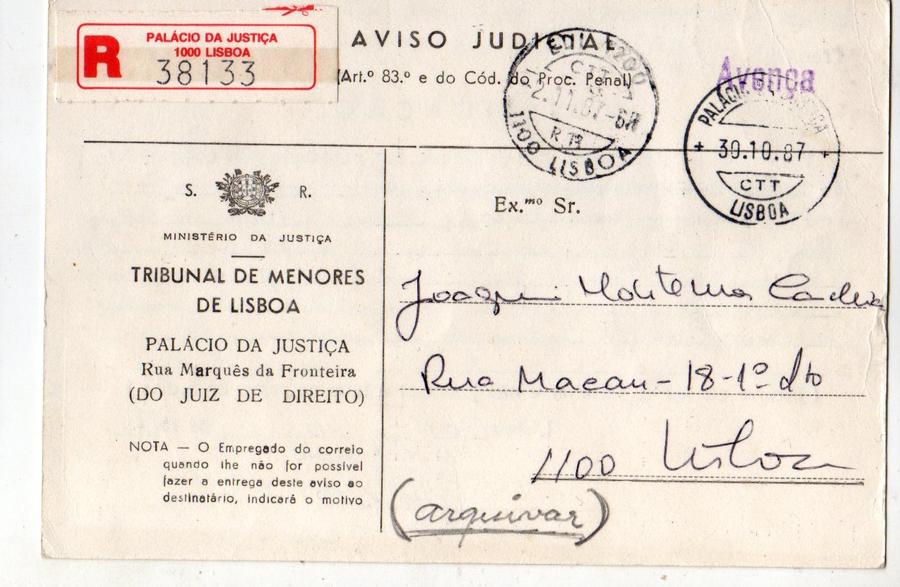 R
PALÁCIO DA JUSTIÇA
1000 LISBOA
38133
AVISO JUDICIAL
(Art.º 83.º e do Cód. do Proc. Penal)
CTT
2.11.87-6
R 13
1100 LISBOA
Avença
30.10.87
CTT
LISBOA
S. R.
MINISTÉRIO DA JUSTIÇA
TRIBUNAL DE MENORES
DE LISBOA
PALÁCIO DA JUSTIÇA
Rua Marquês da Fronteira
(DO JUIZ DE DIREITO)
NOTA — O Empregado do correio
quando lhe não for possível
fazer a entrega deste aviso ao
destinatário, indicará o motivo
Ex.mo Sr.
Joaquim
Rua Macau - 18-1º dto
1100 Lisboa
(arquivar)